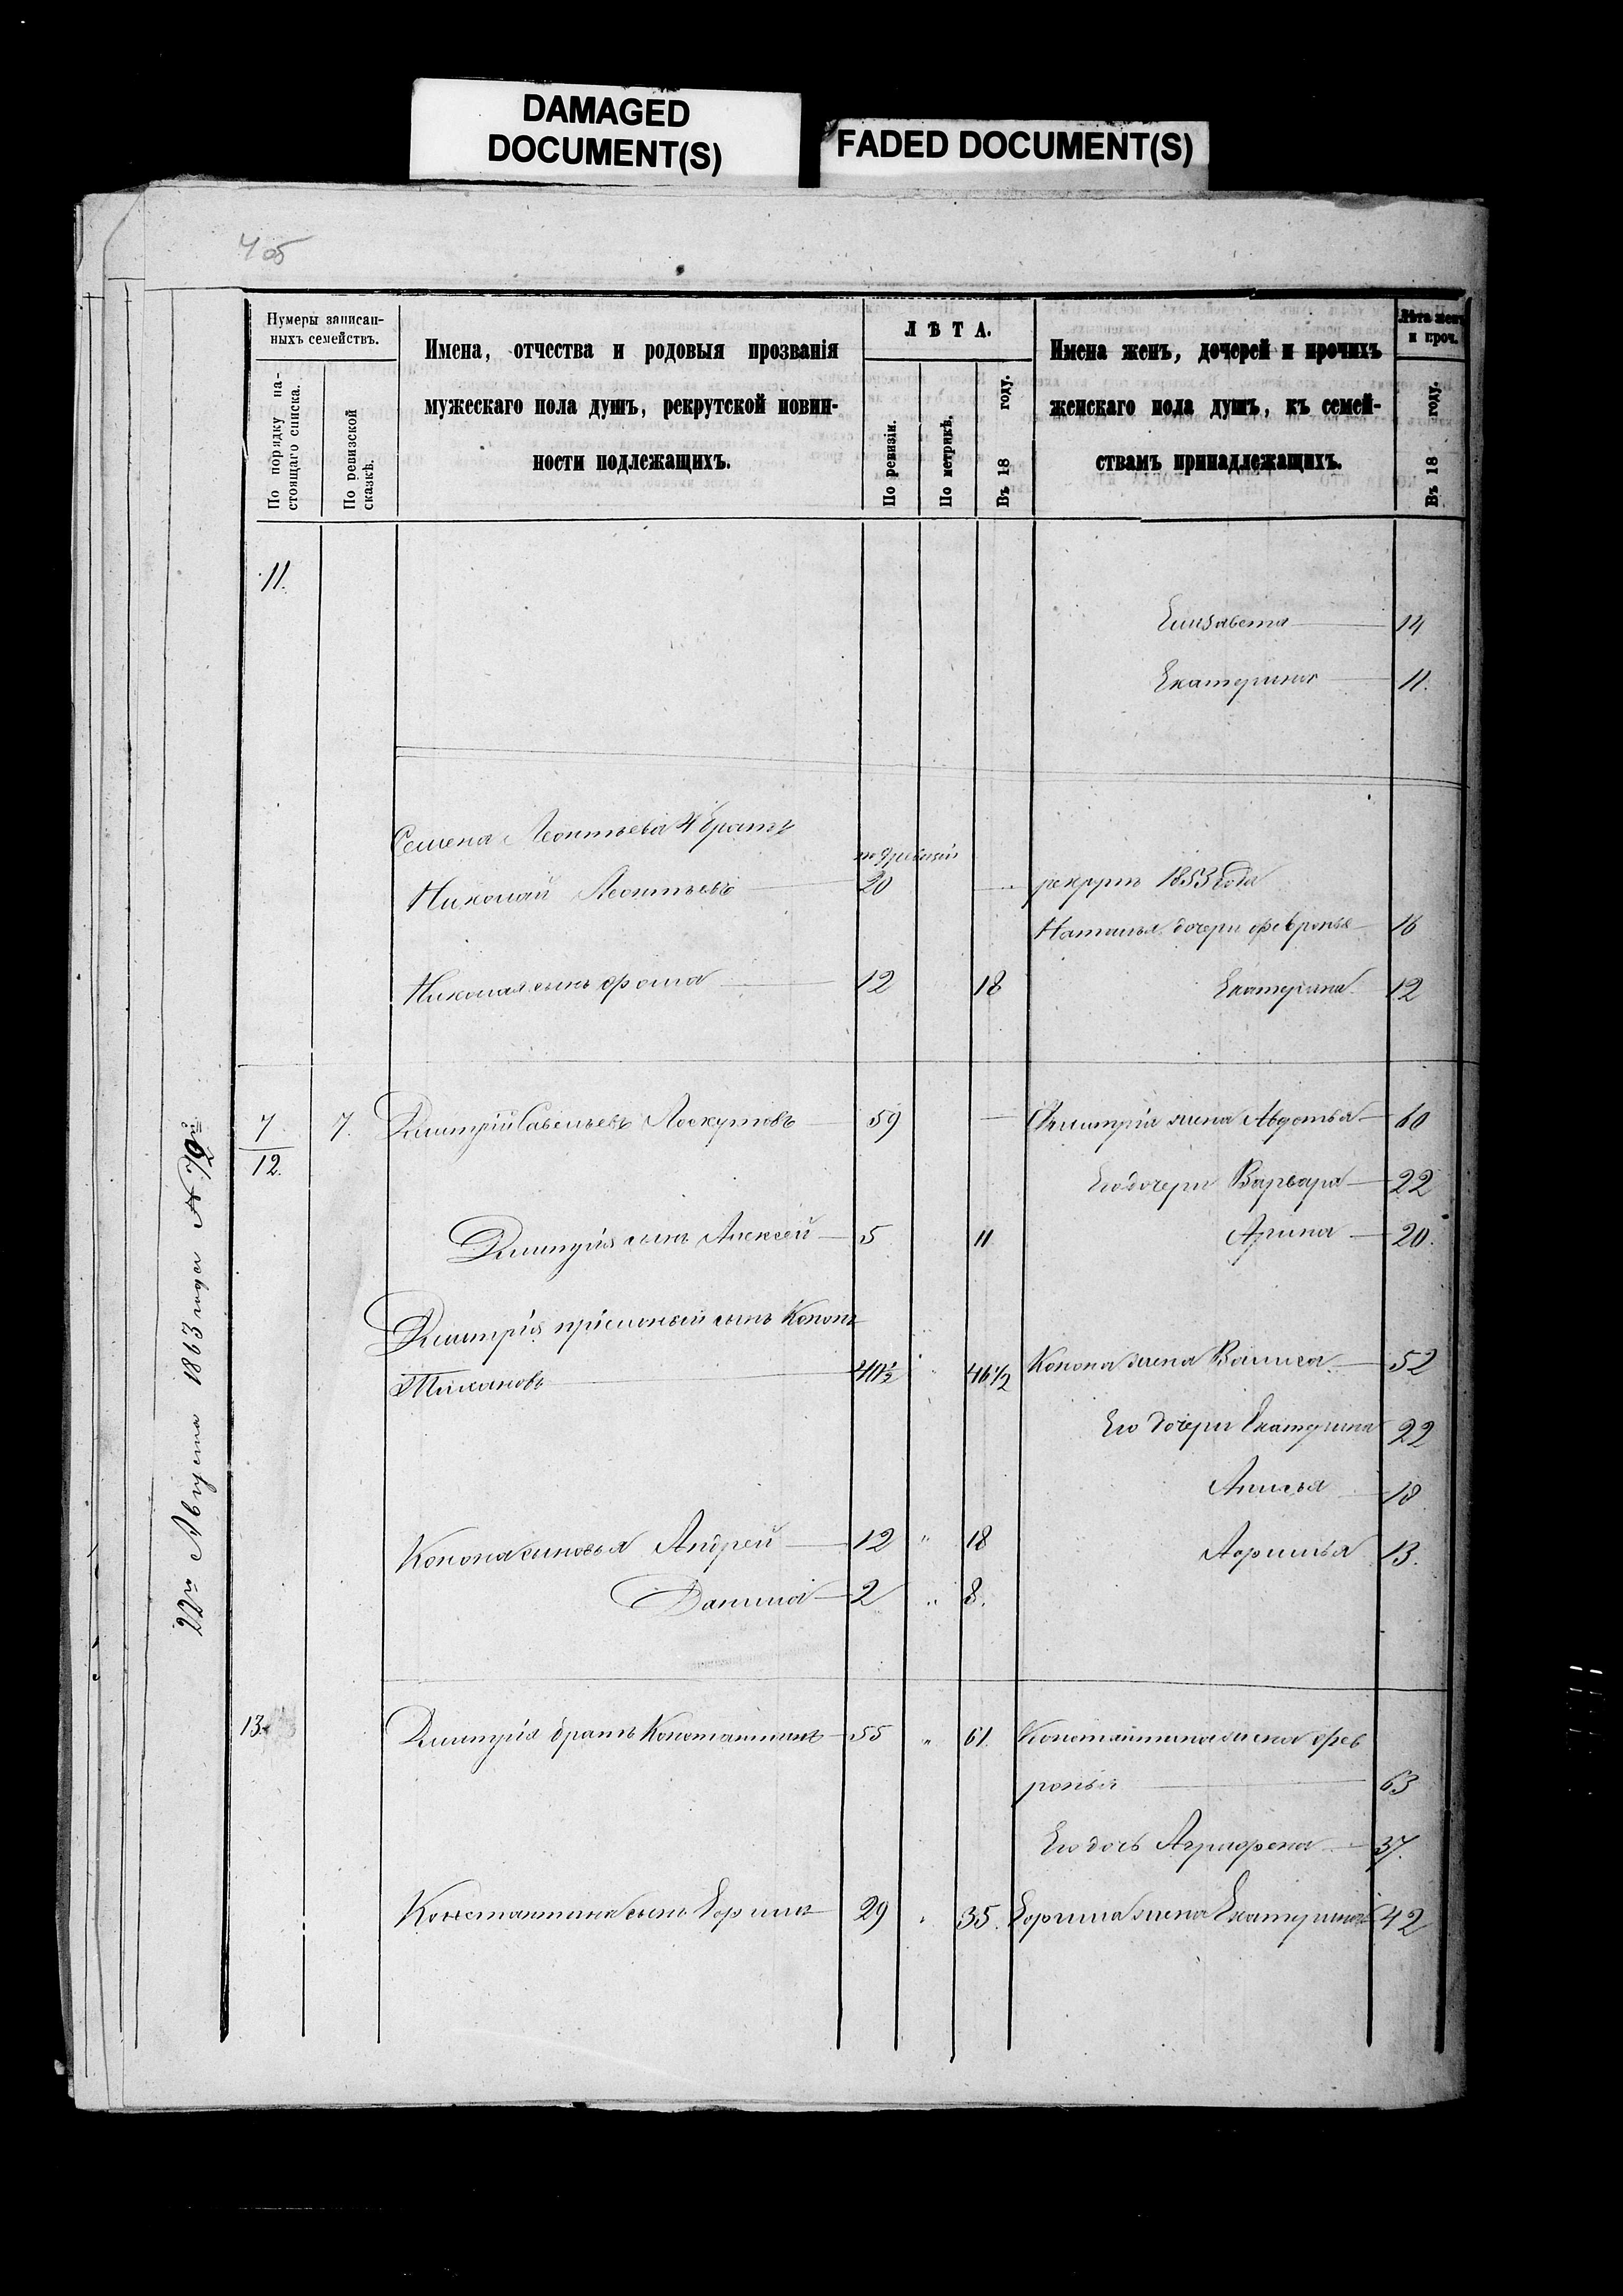 DAMAGED
DOCUMENT(S)
FADED DOCUMENT(S)
4 об
Нумеры записан-
ныхъ семействъ.
По порядку на-
стоящаго списка.
По ревизской
сказкѣ.
Имена, отчества и родовыя прозванія
мужескаго пола душъ, рекрутской повин-
ности подлежащихъ.
ЛѢТА.
По ревизіи.
По метрикѣ.
Въ 18 году.
Имена женъ, дочерей и прочихъ
женскаго пола душъ, къ семей-
ствамъ принадлежащихъ.
Лѣта женъ
и проч.
Въ 18 году.
11.
Елизавета 14
Екатерина 11.
Семена Леонтьева 4 братъ
Николай Леонтьевъ 20 рекрутъ 1853 года
Наталья дочери Февронья 16
Николая сынъ Фома 12 18 Екатерина 12
7/12. 7. Дмитрій Савельевъ Лоскутовъ 59 — Дмитрія жена Авдотья 60
Его дочери Варвара 22
Дмитрія сынъ Алексей 5 11 Арина 20.
Дмитрія пріемный сынъ Кононъ
Тихановъ 40½ 46½ Конона жена Василиса 52
Его дочери Екатерина 22
Анисья 18
Конона сыновья Андрей 12 " 18 13.
Данила 2 " 8.
13. Дмитрія братъ Константинъ 55 " 61. Константина жена Фев
ронья 63
Его дочь Аграфена 37.
Константина сынъ Ефимъ 29 " 35. Ефима жена Екатерина 42
22го Августа 1863 года №